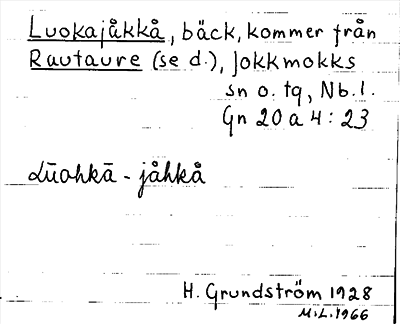 Luokajåkkå, bäck, kommer från
Rautaure (se d.), Jokkmokks
sn o. tq, Nb. l.
Gn 20 a 4 : 23
Lūohkā - jåhkå
H. Grundström 1928
M.L. 1966